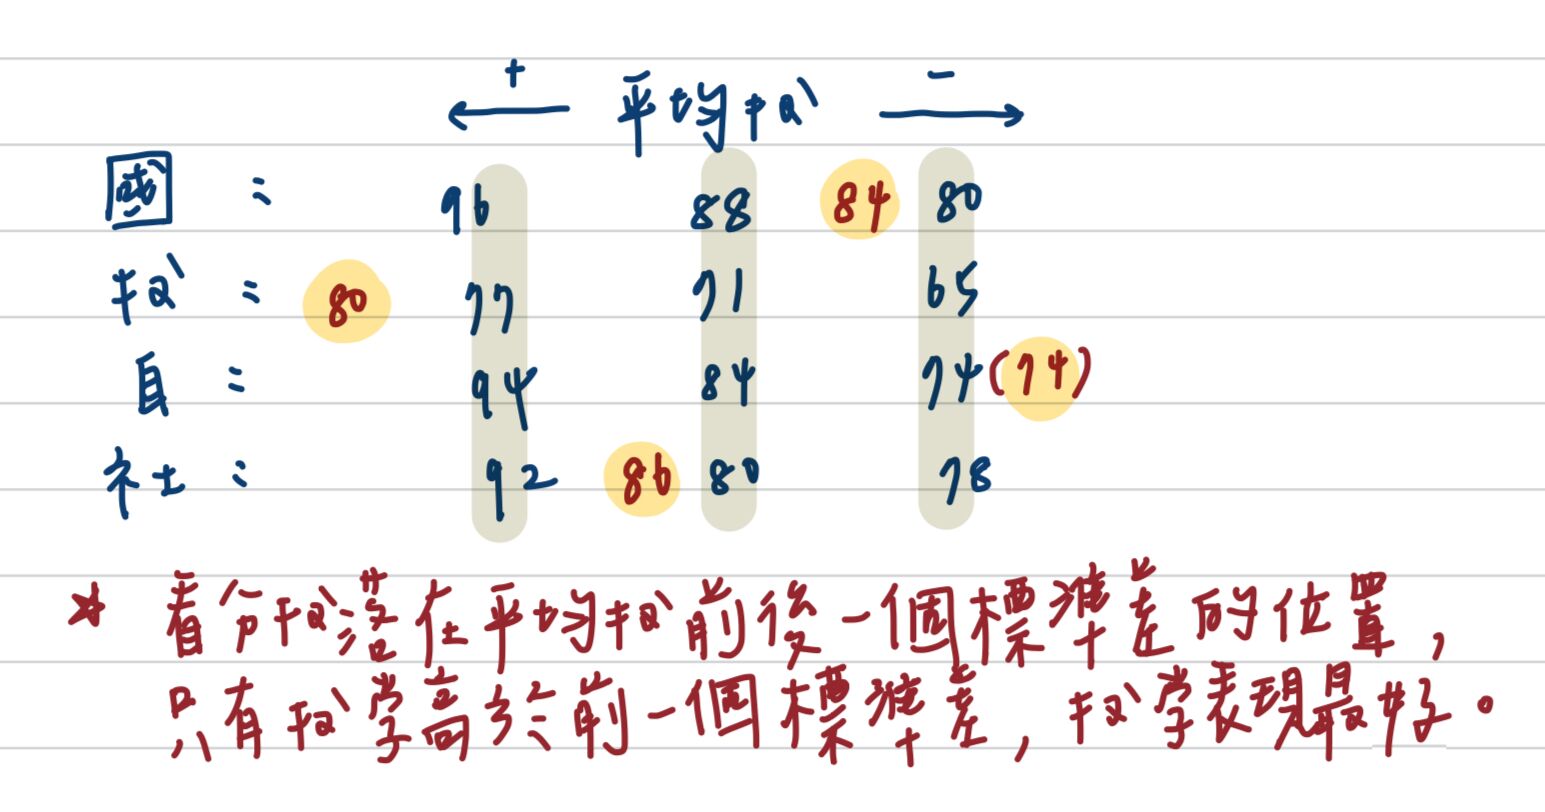 + 平均數 −
國: 96 88 84 80
數: 80 77 71 65
自: 94 84 74 (74)
社: 92 86 80 78
* 看分數落在平均數前後一個標準差的位置,
只有數學高於前一個標準差, 數學表現最好。